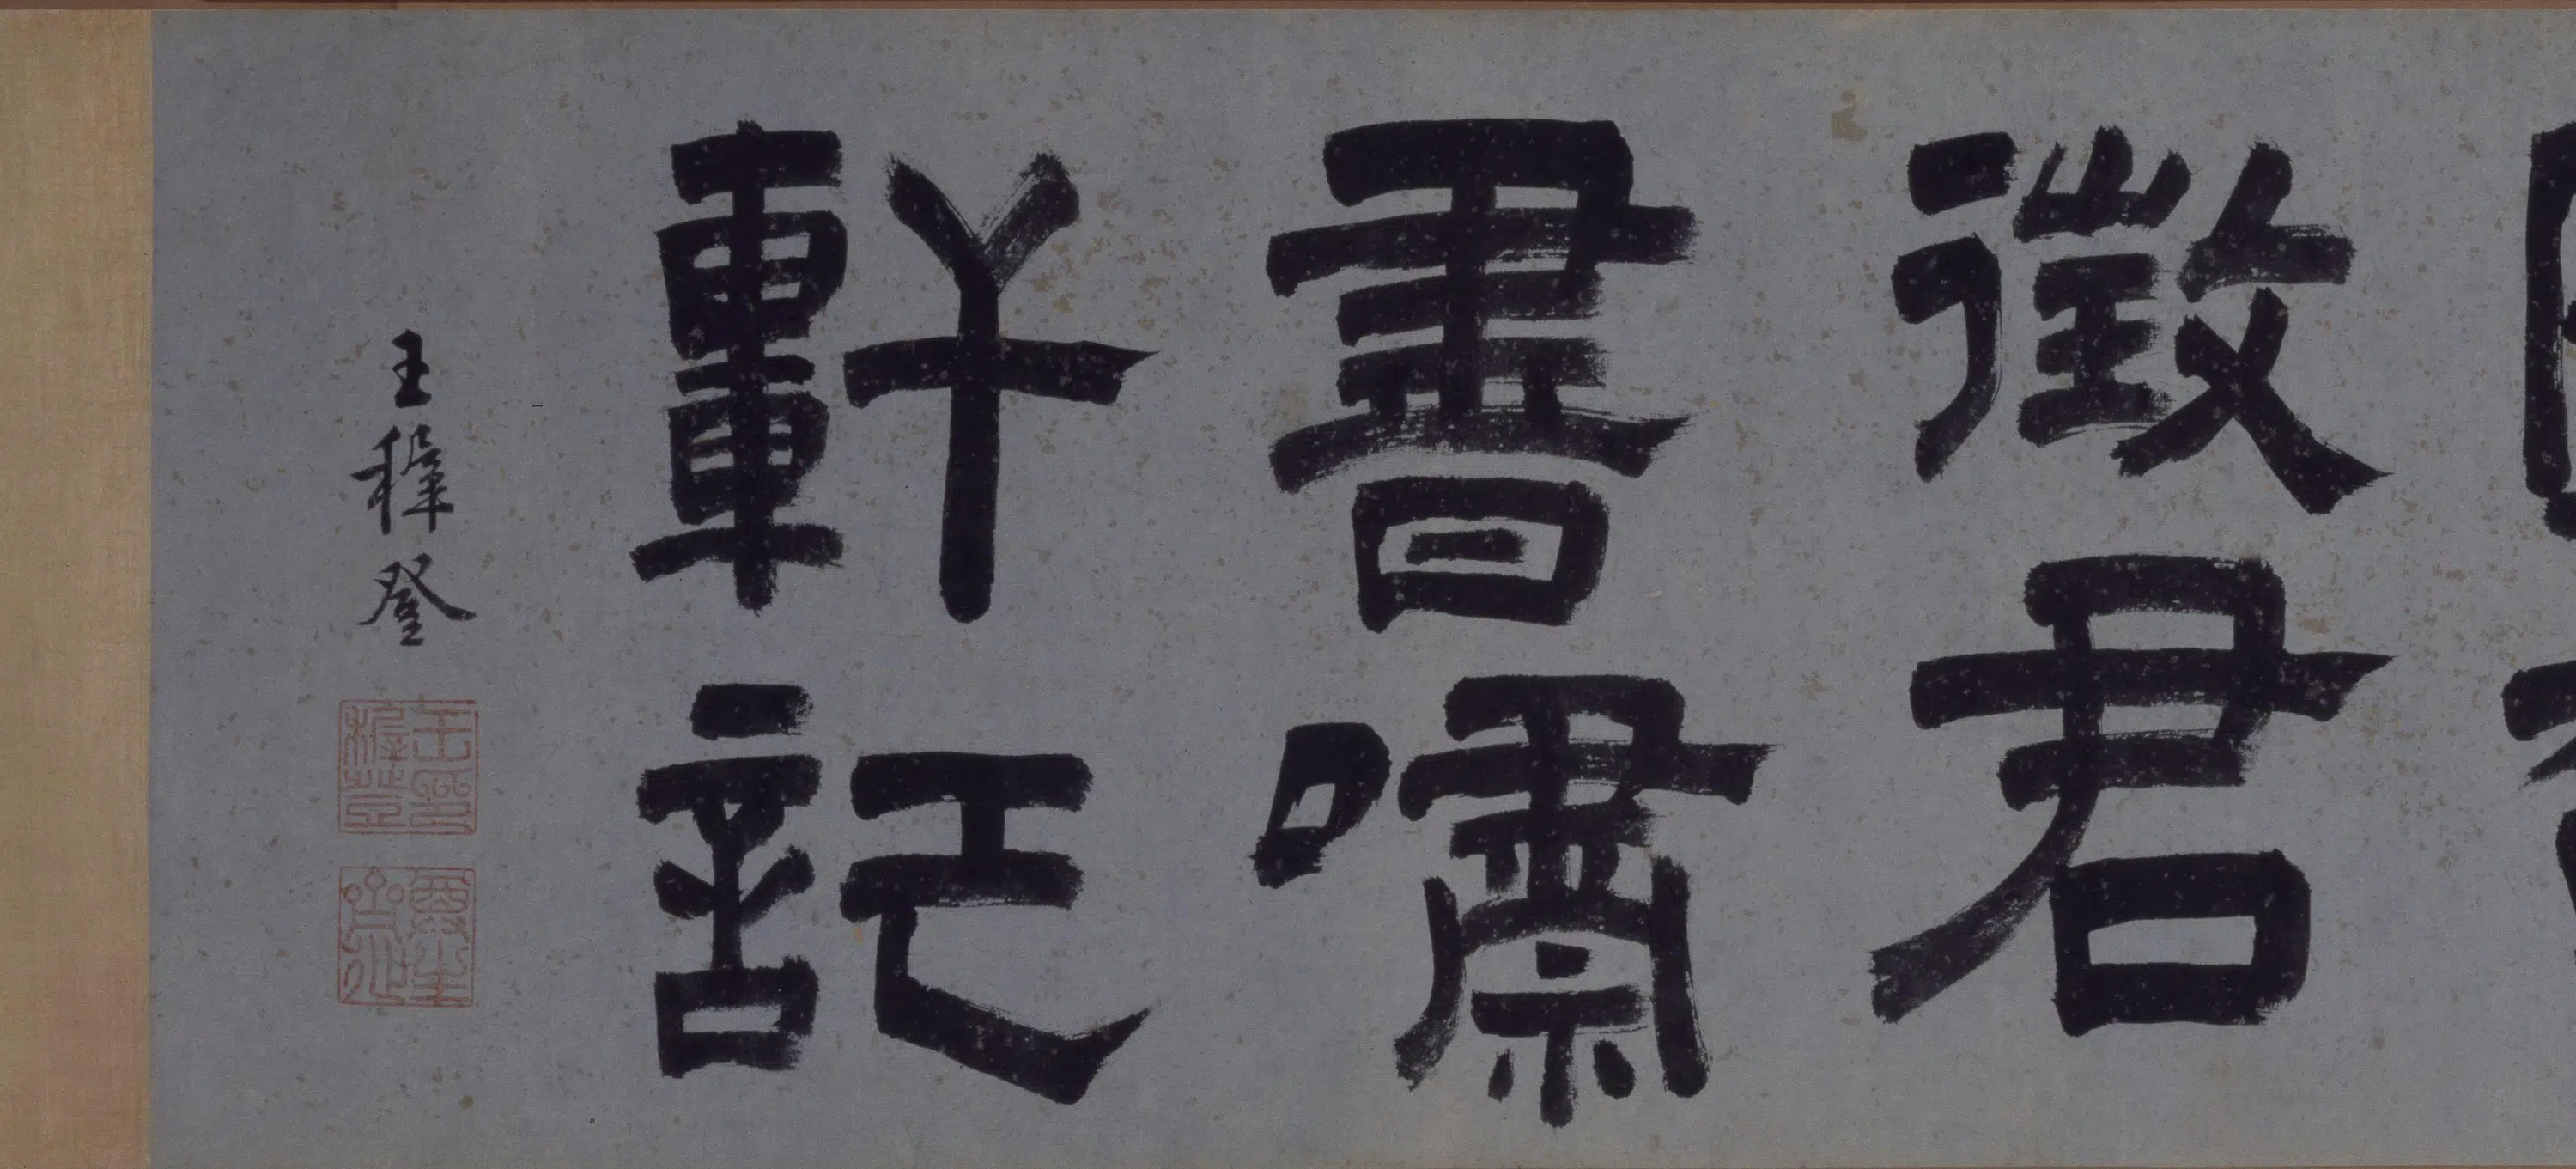 徵君
書嘯
軒記
王穉登